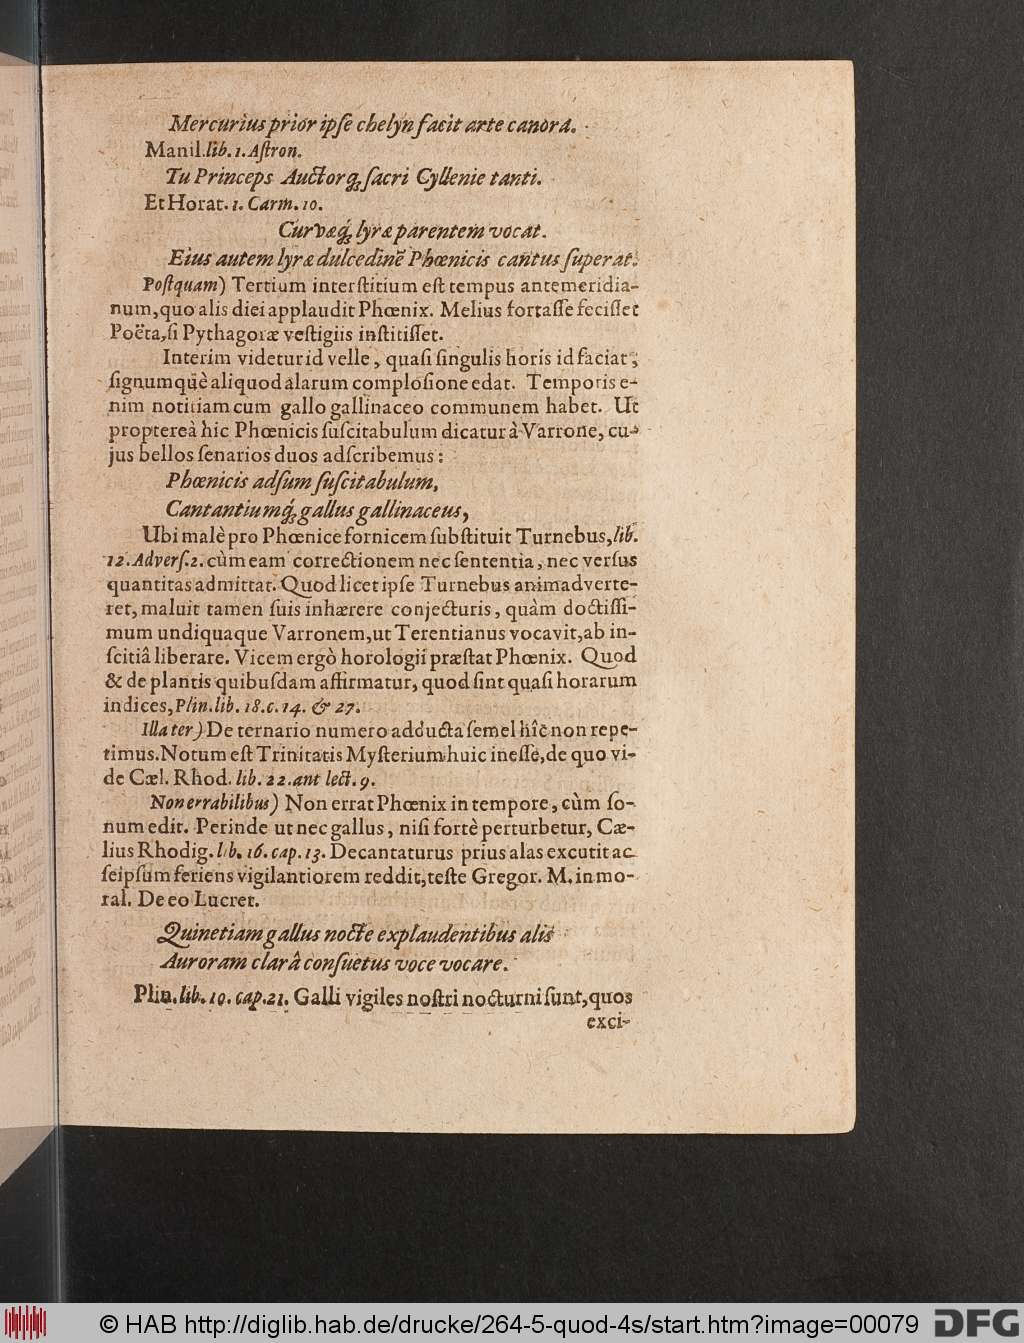 Mercurius prior ipſe chelyn facit arte canora.
Manil. lib. 1. Aſtron.
Tu Princeps Auctorq́; ſacri Cyllenie tanti.
Et Horat. 1. Carm. 10.
Curvæq́; lyræ parentem vocat.
Eius autem lyræ dulcedinē Phœnicis cantus ſuperat.
Poſtquam) Tertium interſtitium eſt tempus antemeridia-
num, quo alis diei applaudit Phœnix. Melius fortaſſe feciſſet
Poëta, ſi Pythagoræ veſtigiis inſtitiſſet.
Interim videtur id velle, quaſi ſingulis horis id faciat,
ſignumquè aliquod alarum comploſione edat. Temporis e-
nim notitiam cum gallo gallinaceo communem habet. Ut
proptereà hic Phœnicis ſuſcitabulum dicatur à Varrone, cu-
jus bellos ſenarios duos adſcribemus:
Phœnicis adſum ſuſcitabulum,
Cantantiumq́; gallus gallinaceus,
Ubi malè pro Phœnice fornicem ſubſtituit Turnebus, lib.
12. Adverſ. 2. cùm eam correctionem nec ſententia, nec verſus
quantitas admittat. Quod licet ipſe Turnebus animadverte-
ret, maluit tamen ſuis inhærere conjecturis, quàm doctiſſi-
mum undiquaque Varronem, ut Terentianus vocavit, ab in-
ſcitiâ liberare. Vicem ergò horologii præſtat Phœnix. Quod
& de plantis quibuſdam affirmatur, quod ſint quaſi horarum
indices, Plin. lib. 18. c. 14. & 27.
Illa ter) De ternario numero adducta ſemel hîc non repe-
timus. Notum eſt Trinitatis Myſterium huic ineſſe, de quo vi-
de Cæl. Rhod. lib. 22. ant lect. 9.
Non errabilibus) Non errat Phœnix in tempore, cùm ſo-
num edit. Perinde ut nec gallus, niſi fortè perturbetur, Cæ-
lius Rhodig. lib. 16. cap. 13. Decantaturus prius alas excutit ac
ſeipſum feriens vigilantiorem reddit, teſte Gregor. M. in mo-
ral. De eo Lucret.
Quinetiam gallus nocte explaudentibus alis
Auroram clarâ conſuetus voce vocare.
Plin. lib. 10. cap. 21. Galli vigiles noſtri nocturni ſunt, quos
exci-
© HAB http://diglib.hab.de/drucke/264-5-quod-4s/start.htm?image=00079
DFG